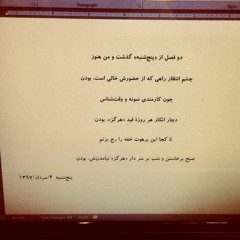 دو فصل از «پنج‌شنبه» گذشت و من هنوز
چشم انتظار راهی که از حضورش خالی است، بودن
چون کارمندی نمونه و وقت‌شناس
دچار انکار هر روزهٔ قید «هرگز»، بودن
تا کجا این برهوت خفه را رج بزنم
صبح برخاستن و شب بر سر دار «هرگز» نیامدن‌ش، بودن
پنج‌شنبه ۴/مرداد/۱۳۹۷
Paragraph